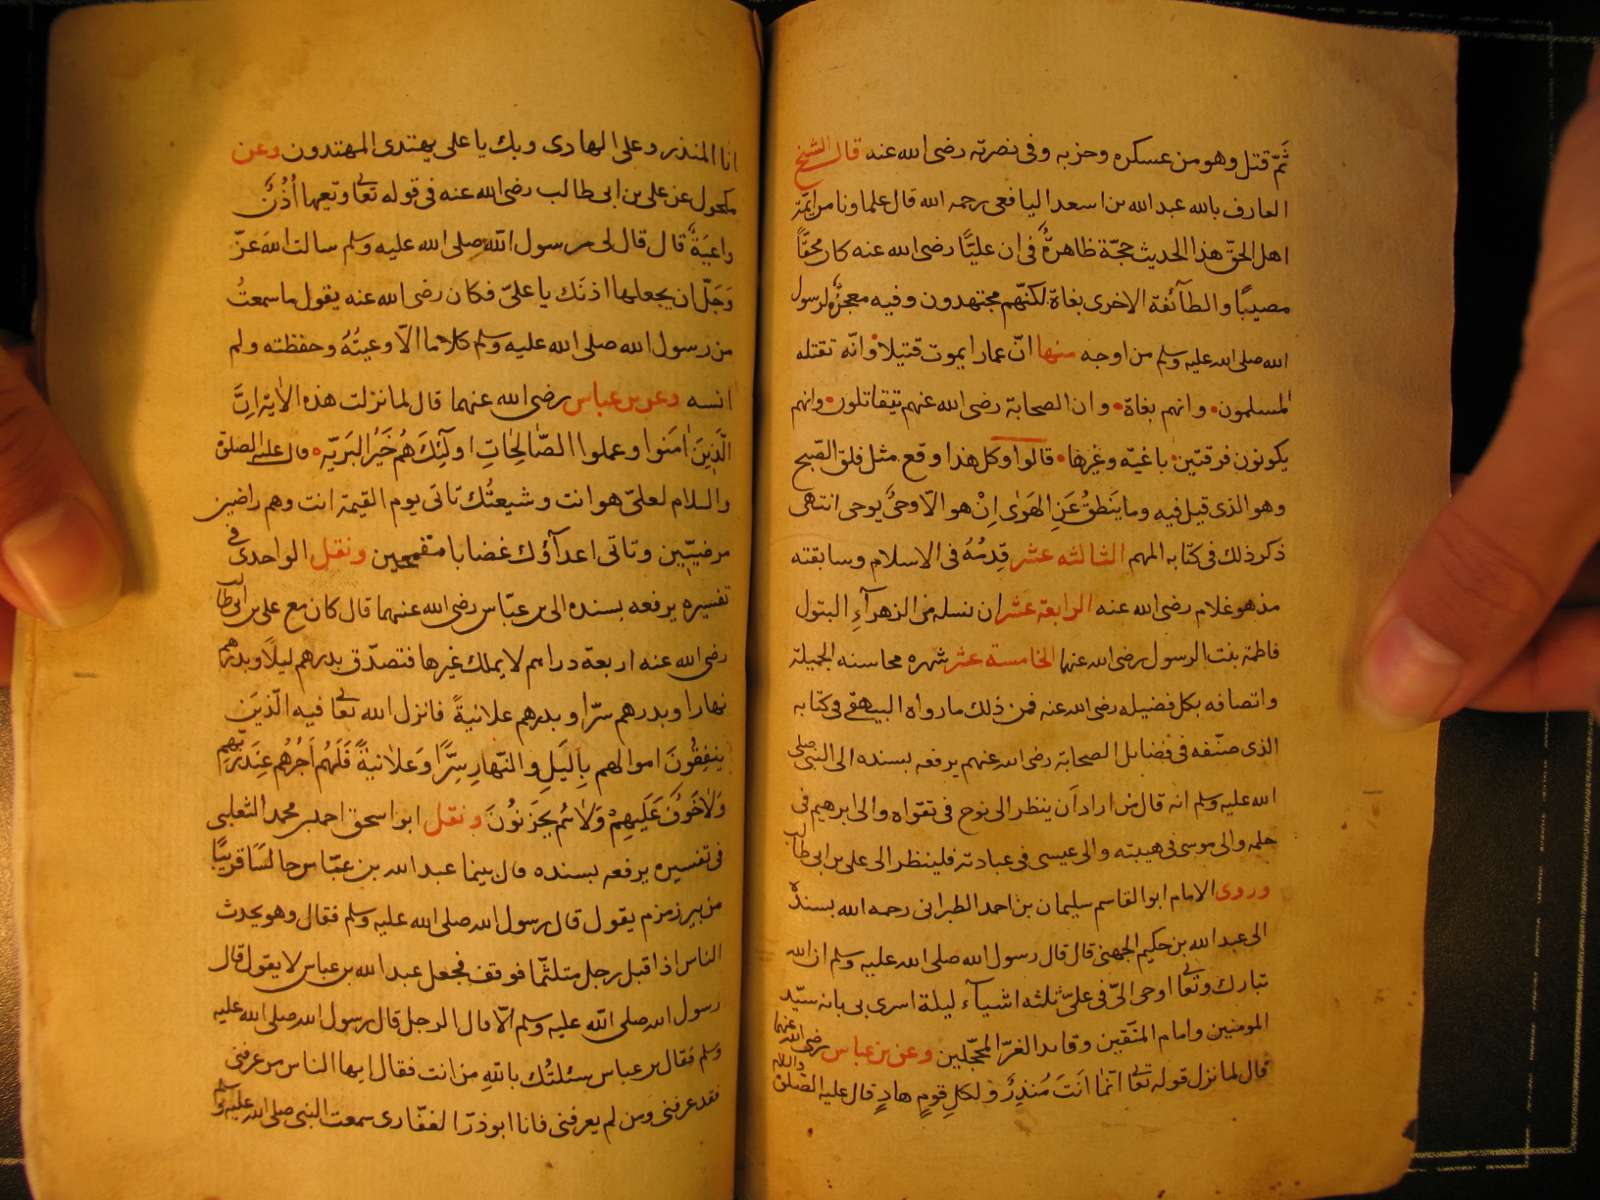 ثمّ قتل وهو من عسكره وحزبه وفى نصرته رضى الله عنه قال الشيخ
العارف بالله عبد الله بن اسعد اليافعى رحمه الله قال علماونا من ايمّة
اهل الحقّ هذا الحديث حجّة ظاهرةٌ فى ان عليًّا رضى الله عنه كان محقّاً
مصيبًا والطآئفة الاخرى بغاة لكنّهم مجتهدون وفيه معجزةٌ لرسول
الله صلى الله عليه وسلم من اوجه منها انّ عمارا يموت قتيلا وانّه تقتله
المسلمون وانهم بغاة وان الصحابة رضى الله عنهم يتقاتلون وانهم
يكونون فرقتين باغيّه وغيرها قالوا وكل هذا وقع مثل فلق الصّبح
وهو الذى قيل فيه وما يَنطقُ عَنِ الهَوٰى اِنْ هو الّا وحىٌ يوحى انتهى
ذكر ذلك فى كتابه المهم الثالثه عشر قِدمُهُ فى الاسلام وسابقته
مذ هو غلام رضى الله عنه الرابعة عشر ان نسله من الزهرآءِ البتول
فاطمة بنت الرسول رضى الله عنها الخامسة عشر شهره محاسنه الجميلة
واتصافه بكل فضيله رضى الله عنه فمن ذلك ما رواه البيهقى فى كتابه
الذى صنّفه فى فضائل الصحابة رضى الله عنهم يرفعه بسنده الى النبى صلى
الله عليه وسلم انه قال من اراد اَن ينظر الى نوح فى تقواه والى ابرهيم فى
حلمه والى موسى فى هيبته والى عيسى فى عبادته فلينظر الى على بن ابى طالب
وروى الامام ابو القاسم سليمان بن احمد الطبرانى رحمه الله بسنده
الى عبد الله بن حكيم الجهنى قال قال رسول الله صلى الله عليه وسلم ان الله
تبارك وتعالى اوحى الىّ فى علىّ ثلثه اشيآء ليلة اسرى بى بانه سيّد
المومنين وامام المتّقين وقائد الغرّ المحجّلين وعن بن عباس رضى الله عنهما
قال لما نزل قوله تعالى انّما اَنتَ مُنذِرٌ ولكلِ قومٍ هادٍ قال عليه الصلوة والسلام
انا المنذر وعلى الهادى وبك يا على يهتدى المهتدون وعن
مكحول عن على بن ابى طالب رضى الله عنه فى قوله تعالى وتعيها اُذُنٌ
واعيَةٌ قال قال لى رسول الله صلى الله عليه وسلم سالت الله عزّ
وَجَلّ ان يجعلها اذنَك يا علىّ فكان رضى الله عنه يقول ما سمعتُ
من رسول الله صلى الله عليه وسلم كلاما الّا وعيتُهُ وحفظته ولم
انسه وعن بن عباس رضى الله عنهما قال لما نزلت هذه الاٰية اِنَّ
الّذينَ اٰمَنوا وعملوا الصّالِحَاتِ اولٰئِكَ هُم خَيرُ البَريّه قال عليه الصلوة
والسلام لعلىّ هو انت وشيعتُك تاتى يوم القيمة انت وهم راضين
مرضيّين وتاتى اعدآؤك غضابا مقمحين ونقل الواحدى فى
تفسيره يرفعه بسنده الى بن عبّاس رضى الله عنهما قال كان مع على بن ابى طالب
رضى الله عنه اربعة دراهم لا يملك غيرها فتصدّق بدرهم ليلًا وبدرهم
نهارا وبدرهم سرّا وبدرهم علانيةً فانزل الله تعالى فيه الّذينَ
ينفِقُونَ اموالهم بِاليَلِ والنّهارِ سِرًّا وَعَلانيةً فَلَهُم اَجرُهُم عِندَ ربّهِم
وَلاخَوفٌ عَلَيهِمْ وَلا هُم يحزَنُونَ ونقل ابو اسحق احمد بن محمد الثعلبى
فى تفسيره يرفعه بسنده قال بينما عبد الله بن عبّاس جالسًا قريبًا
من بير زمزم يقول قال رسول الله صلى الله عليه وسلم فقال وهو يحدث
الناس اذ اقبل رجل متلثّما فوقف فجعل عبد الله بن عباس لا يقول قال
رسول الله صلى الله عليه وسلم الّا قال الرجل قال رسول الله صلى الله عليه
وسلم فقال بن عباس سئلتُك باللهِ من انت فقال ايها الناس من عرفنى
فقد عرفنى ومن لم يعرفنى فانا ابو ذرّ الغفّارى سمعت النبى صلى الله عليه و